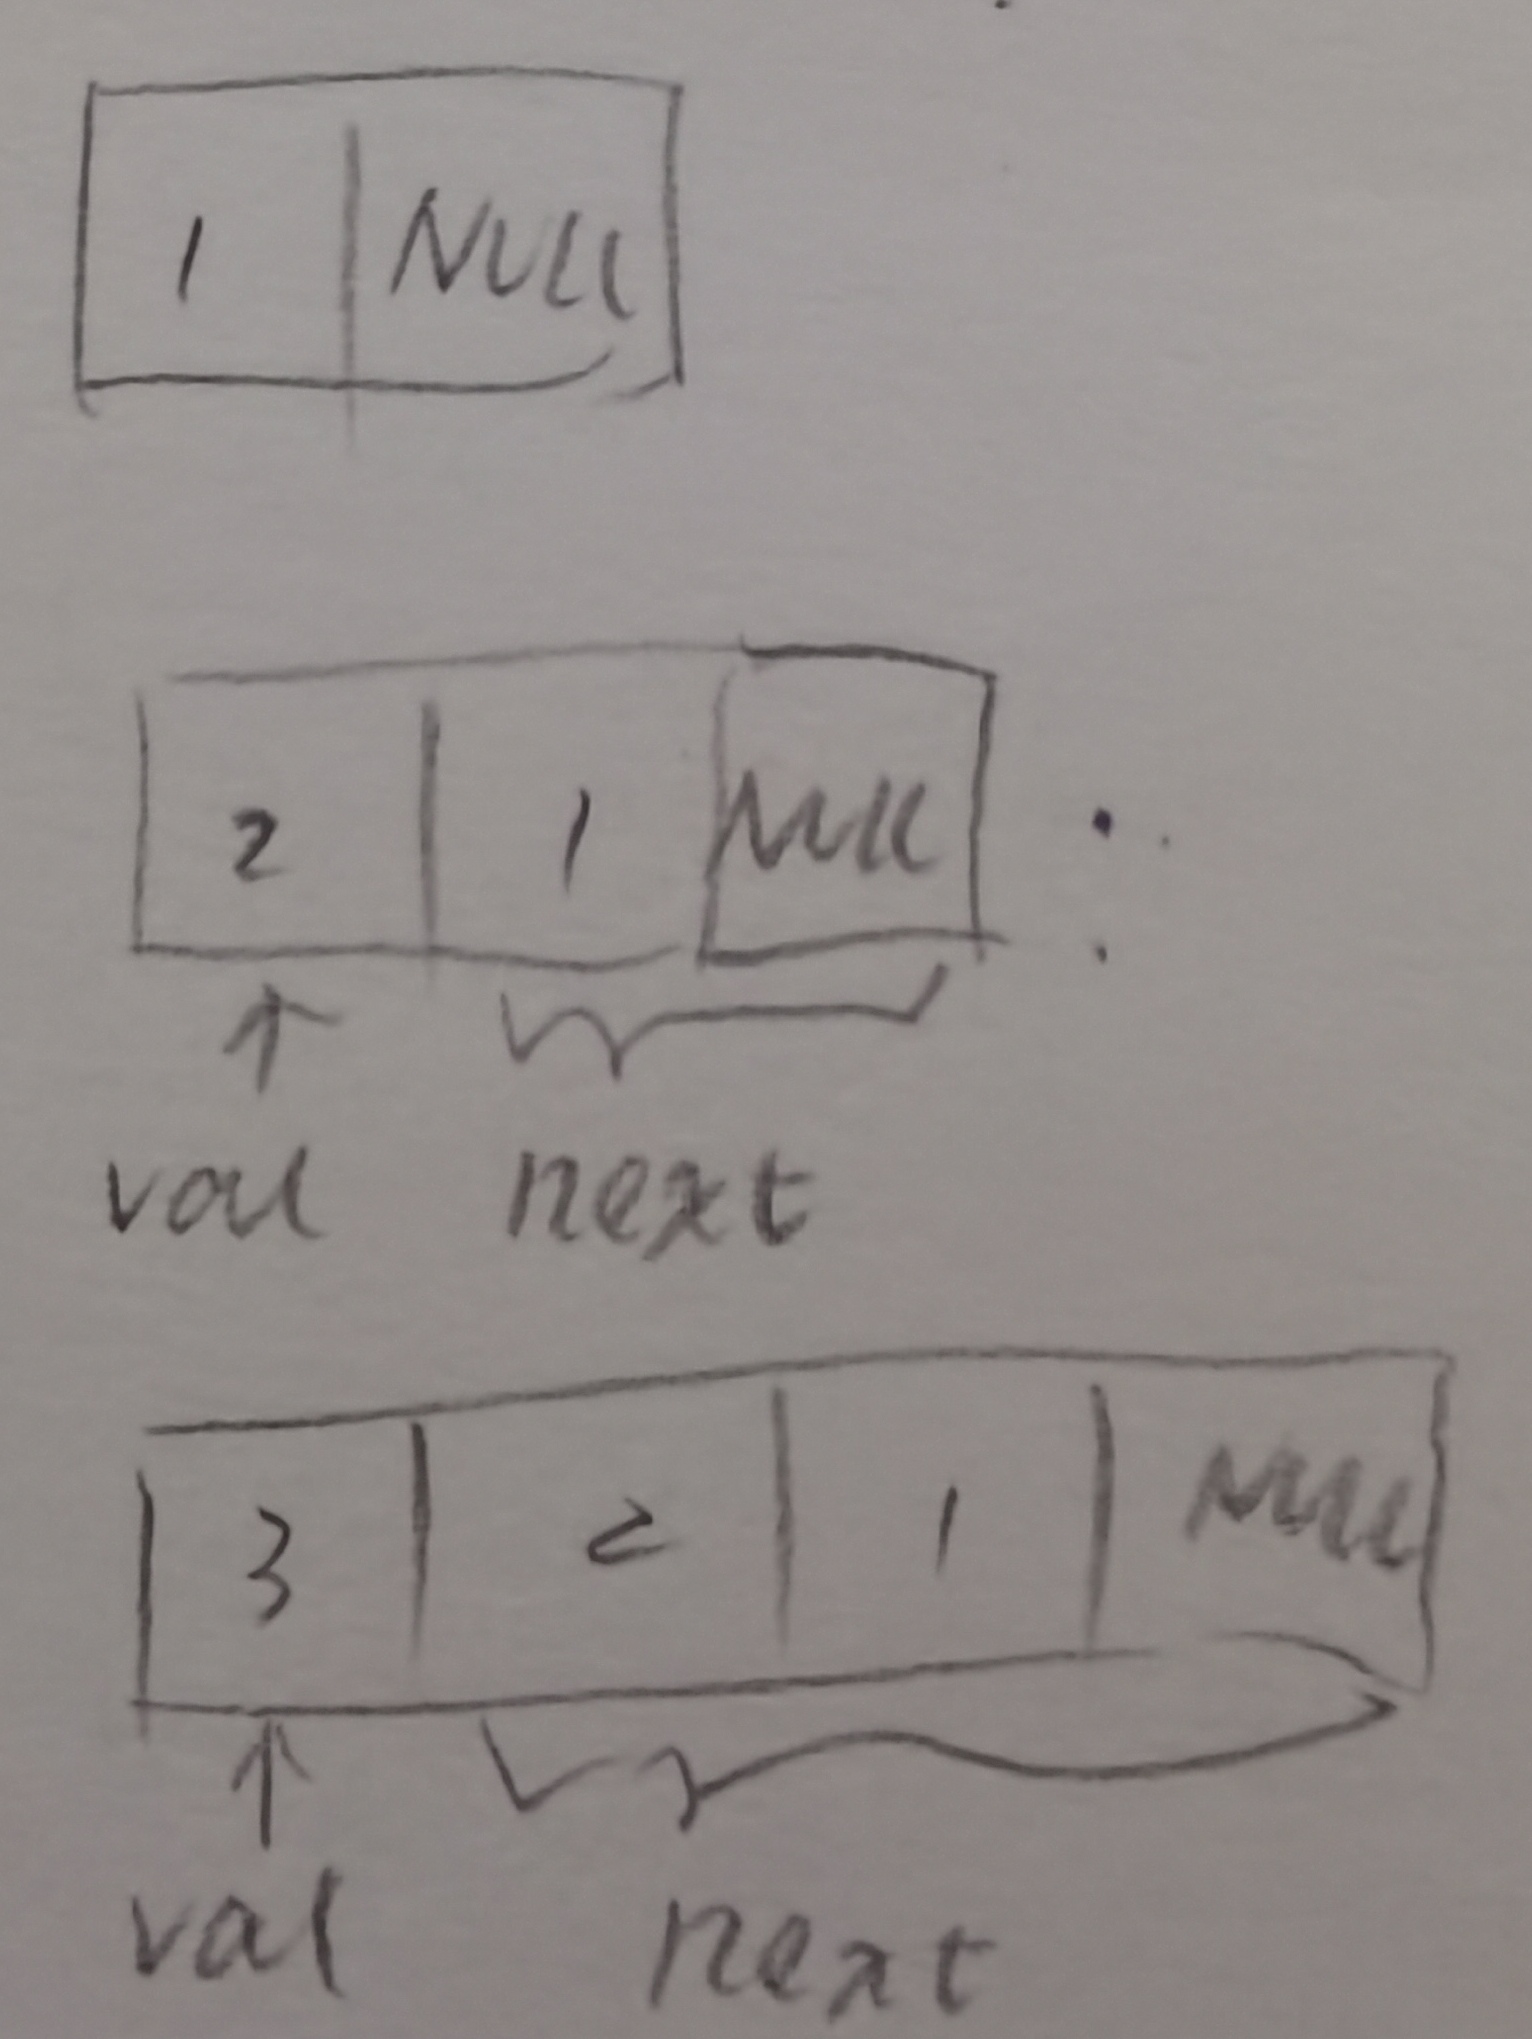 1 NULL
2 1 NULL
val next
3 2 1 NULL
val next